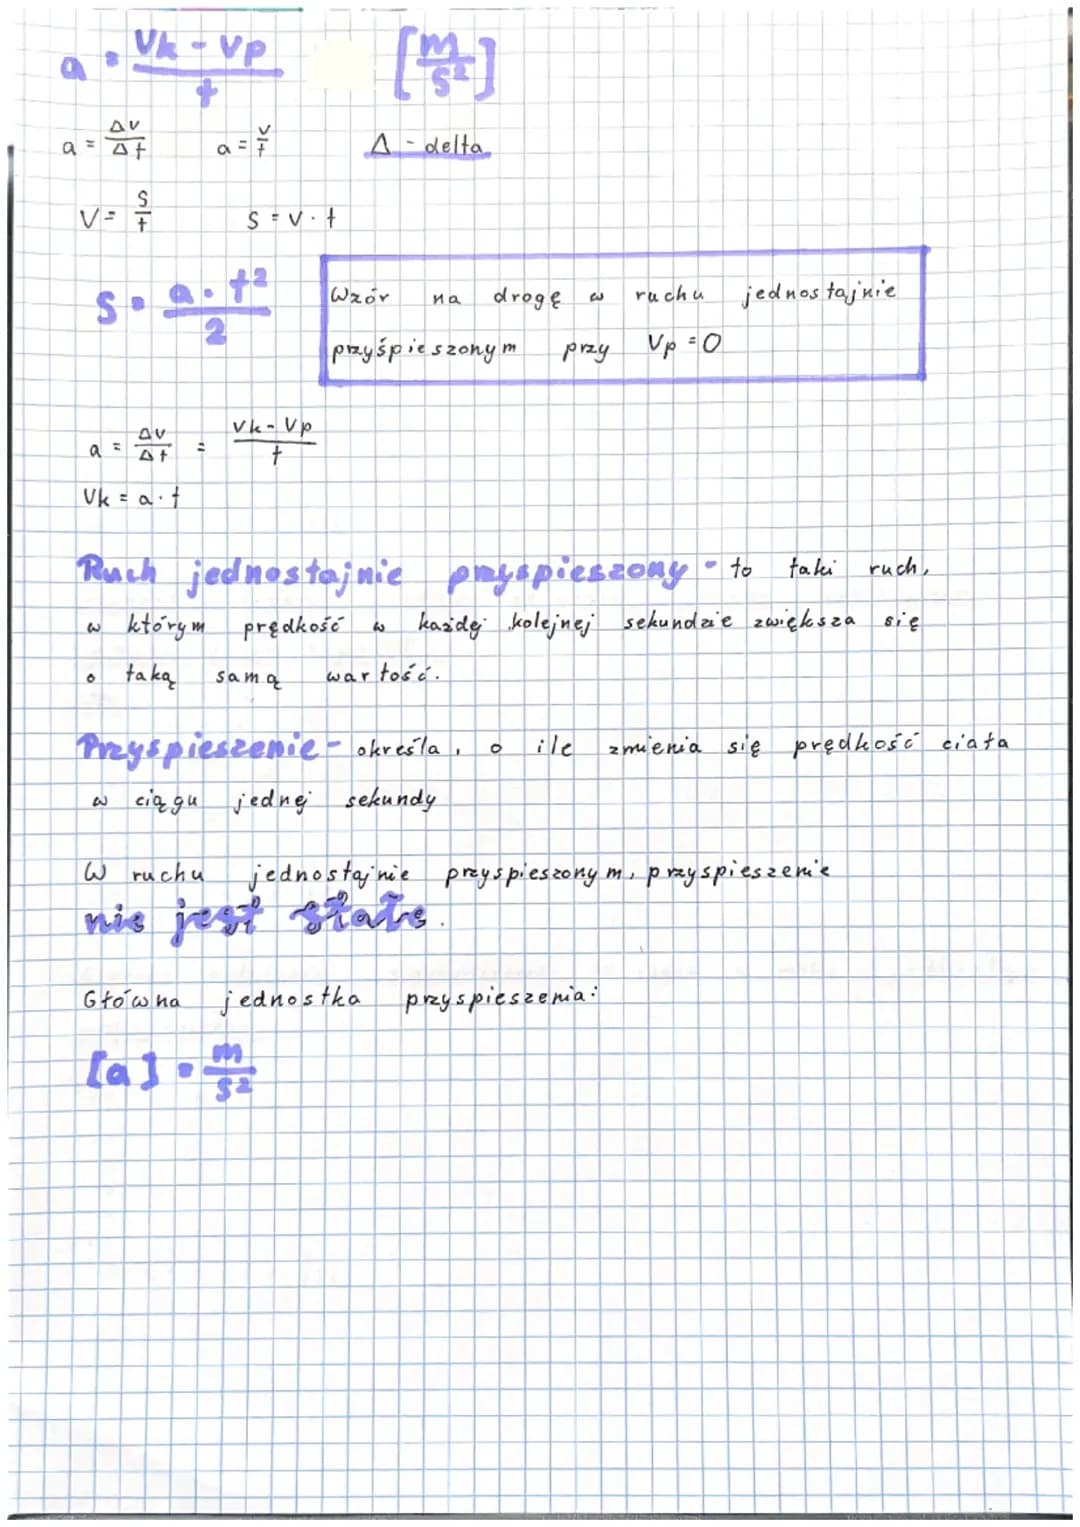 a = Vk - Vp / t [m/s²]
a = ΔV/Δt a = V/t Δ - delta
V = S/t S = V · t
S = a · t² / 2
Wzór na drogę w ruchu jednostajnie
przyśpieszonym przy Vp = 0
a = ΔV/Δt = Vk - Vp / t
Vk = a · t
Ruch jednostajnie przyspieszony - to taki ruch,
w którym prędkość w każdej kolejnej sekundzie zwiększa się
o taką samą wartość.
Przyspieszenie - określa, o ile zmienia się prędkość ciała
w ciągu jednej sekundy
W ruchu jednostajnie przyspieszonym, przyspieszenie
nie jest stałe.
Główna jednostka przyspieszenia:
[a] = m/s²